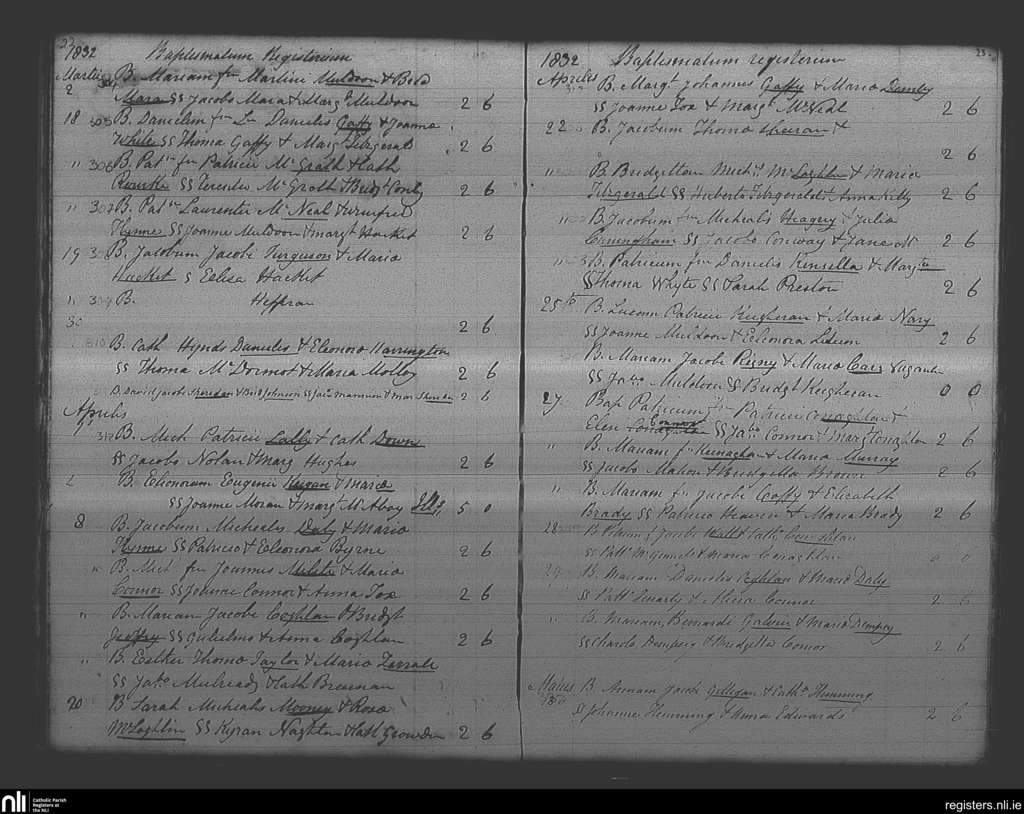 23
1832 Baptismatum Registorium
Martii B. Mariam fm Martini Muldoon & Brid
2 Mara SS Jacobo Mara & Margt Muldoon 2 6
18 305 B. Danielem fm Lm Danielis Gaffy & Joanna
White SS Thoma Gaffy & Margt Fitzgerald 2 6
" 306 B. Patm fm Patricii McGrath & Cath
Rourke SS Terentio McGrath & Bridgt Conly 2 6
" 307 B. Patm Laurentii McNeal & Winifred
Flynne SS Joanne Muldoon & Margt Hacket 2 6
19 B. Jacobum Jacobi Ferguson & Maria
Hacket S Eelisa Hacket
" 309 B. Heffran
30 2 6
310 B. Cath Hynds Danielis & Eleonora Harrington
SS Thoma McDormot & Maria Molloy 2 6
B. David Jacobi Sheredan & Brid Johnson SS Jaco & Mar 2 6
Aprilis
312 B. Mich Patricii Lally & Cath Downs
SS Jacobo Nolan & Marg Hughes 2 6
B. Elionoram Eugenii & Maria
SS Joanne Moran & Margt McAboy Ill. 5 0
8 B. Jacobum Michealis Daly & Maria
Flynne SS Patricio & Eeleonora Byrne 2 6
" B. Micl fm Joannis & Maria
Connor SS Joanne Connor & Anna Fox 2 6
" B. Mariam Jacobi Coghlan & Bridgt
Geoffry SS Gulielmo & Anna Coghlan 2 6
" B. Esther Thoma Taylor & Maria
SS Jaco Mulready & Cath Brennan
20 B Sarah Michealis Mooney & Rosa
McLoghlin SS Kyran Naghten & Cath Growden 2 6
23
1832 Baptismatum registerium
Aprilis B. Margt Johannis Gaffy & Maria Dempsy
SS Joanne Fox & Margt McNeal 2 6
22 B. Jacobum Thoma Sheeran &
2 6
" B Bridgettam Michl McLoghlin & Maria
Fitzgerald SS Huberto Fitzgerald & Anna Kelly 2 6
" B. Jacobum fm Michealis Heagny & Julia
Cuningham SS Jacobo Conway & Jane Mc 2 6
" B. Patricium fm Danielis Kinsella & Margtta
SS Thoma Whyte SS Sarah Preston 2 6
25th B. Lucam Patricii Keegheran & Maria Nary
SS Joanne Muldoon & Eelionora 2 6
B. Mariam Jacobi Rigny & Maria Vagantis
SS Jaco Muldoon SS Bridgt Keegheran 0 0
27 Bap Patricium fm Patricii Conaghlan &
Elen Connor SS Jabo Connor & Margt Coughlan 2 6
" B. Mariam fm & Maria Murray
SS Jacobo Mahon & Bridgetta Brown 2 6
" B. Mariam fm Jacobi Gaffy & Elizabeth
Brady SS Patricio & Maria Brady 2 6
28 B Jacobi & Cath Coughlan
SS Patt McGinnels & Maria 0 0
29 B. Mariam Danielis Coghlan & Maria Daly
SS Patt & Maria Connor 2 6
" B. Mariam Bernardi Galvin & Maria Dempsy
SS Charolo Dempsy & Bridgetta Connor 2 6
Maius B. Annam Jacobi Gilligan & Catha Flemming
SS Johanne Flemming & Anna Edwards 2 6
nli Catholic Parish
Registers at
the NLI
registers.nli.ie